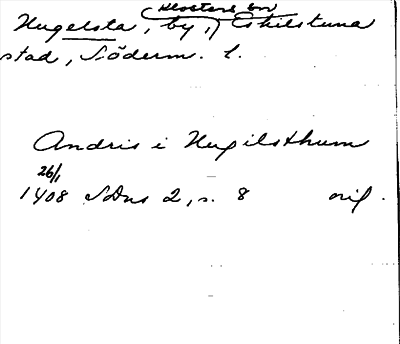 Klosters sn
Hugelsta, by, i Eskilstuna
stad, Söderm. l.
Andris i Hugilsthum
26/1
1408 SDns 2, s. 8 orig.